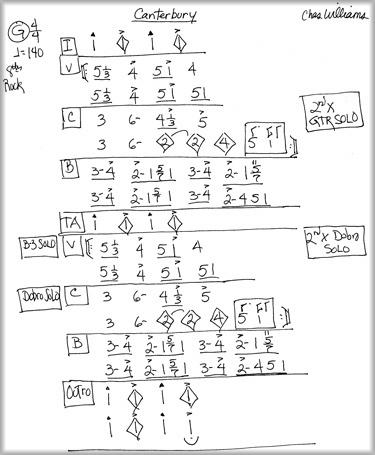 Canterbury
Chas Williams
G 4/4
♩=140
Rock
I 1 1 1 1
V 5 1/3 4 5 1 4
5 1/3 4 5 1 5 1
C 3 6- 4 1/3 5
3 6- 2 2 4 5 1
2nd X GTR SOLO
B 3-4 2-1 5/7 1 3-4 2-1 5/7
3-4 2-1 5/7 1 3-4 2-4 5 1
TA 1 1 1 1
B-3 SOLO V 5 1/3 4 5 1 4
5 1/3 4 5 1 5 1
2nd X Dobro SOLO
Dobro Solo C 3 6- 4 1/3 5
3 6- 2 2 4 5 1
B 3-4 2-1 5/7 1 3-4 2-1 5/7
3-4 2-1 5/7 1 3-4 2-4 5 1
Outro 1 1 1 1
1 1 1 1